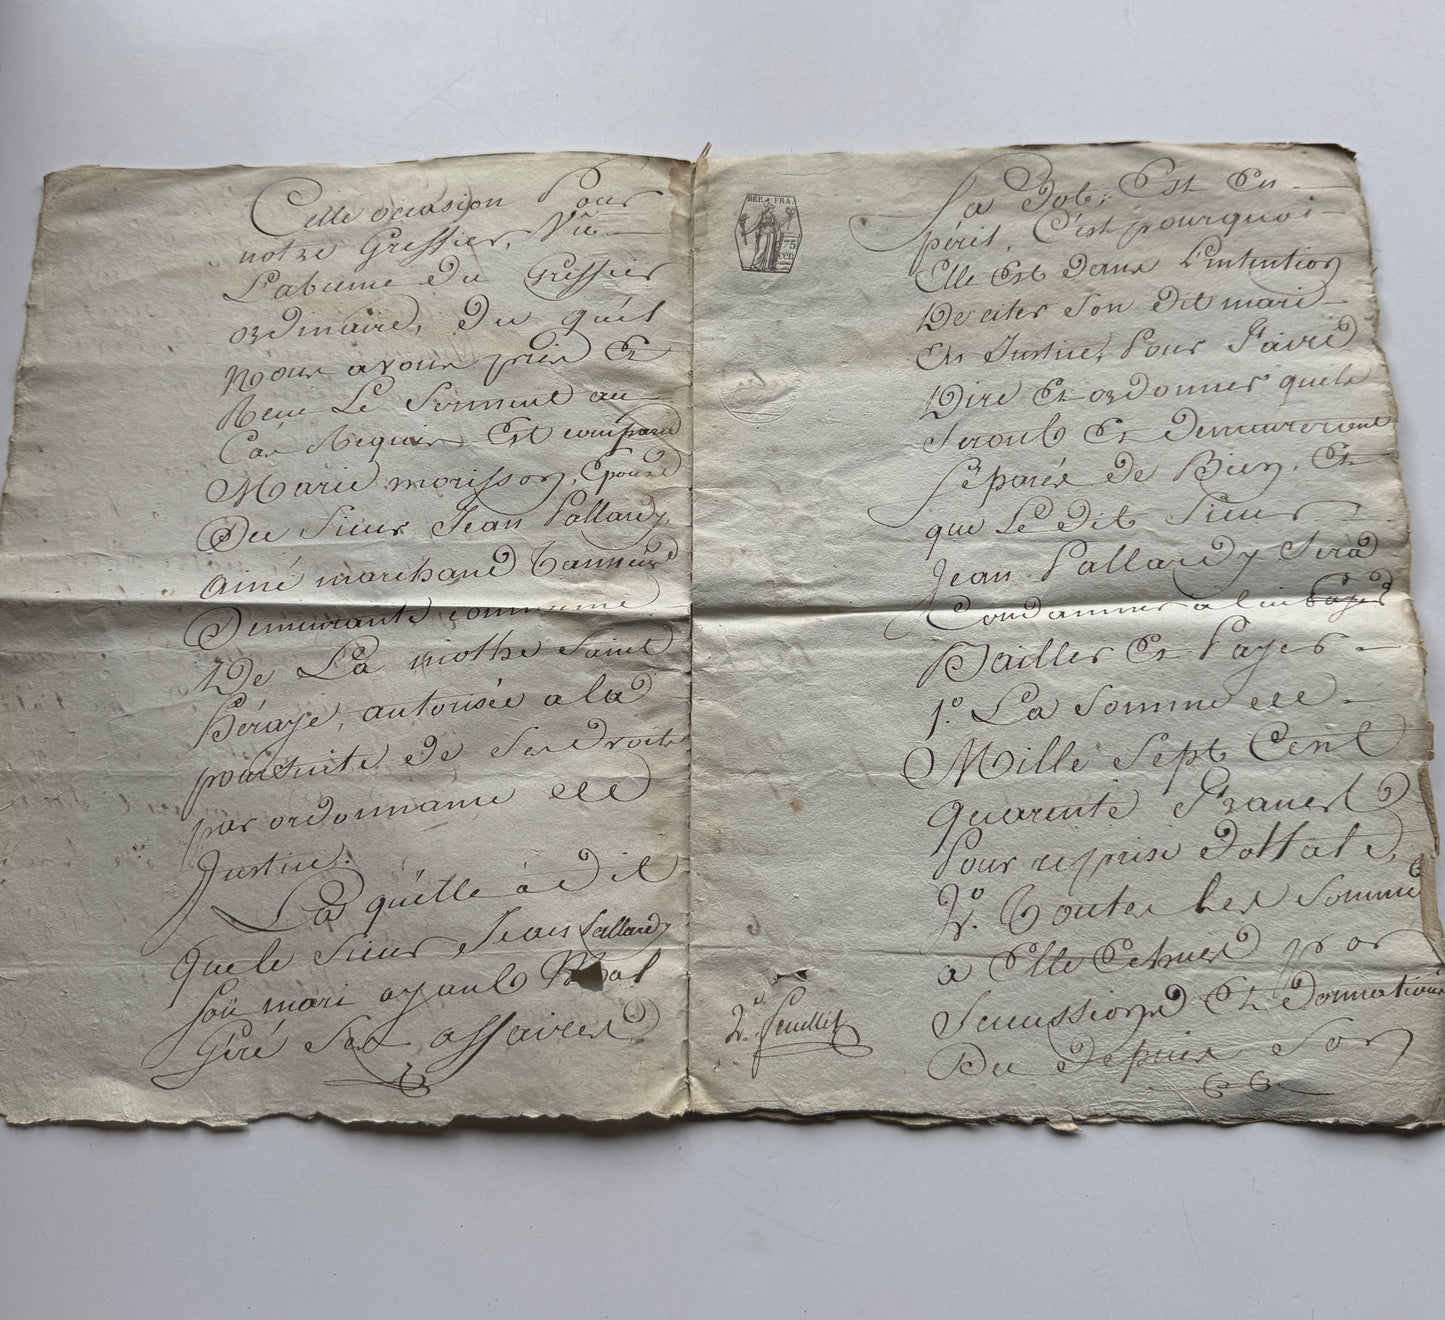 Cette occasion Pour
notre Greffier, Vû
L'absence du Greffier
ordinaire, du quél
Nous avons pris Et
Reçu Le Serment au
Cas Requis Est comparu
Marie morisson, Epouse
Du Sieur Jean Pallardy
ainé marchand Tanneur
Demeurante commune
De La mothe Saint
Héraye, autorisée a la
poursuite de Ses Droits
par ordonnance de
Justice.
Laquélle à Dit
que le Sieur Jean Pallardy
Son mari ayant Mal
Géré Ses affaires
REP. FRA.
75
CEN
La Dot, Est En
péril, C'est pourquoi
Elle Est dans L'intention
De citer Son dit mari
En Justice, Pour Faire
Dire Et ordonner quils
Seront Et Demeureront
Séparés de Biens, Et
que Le Dit Sieur
Jean Pallardy Sera
Condamner a lui Payer
Bailler Et Payer
1.° La Somme de
Mille Sept Cent
quarente Francs
Pour reprise Dottale,
2.° Toutes Les Somme
a Elle Echues par
Sucussions Et Donnations
Du depuis Son
2.e feuillet